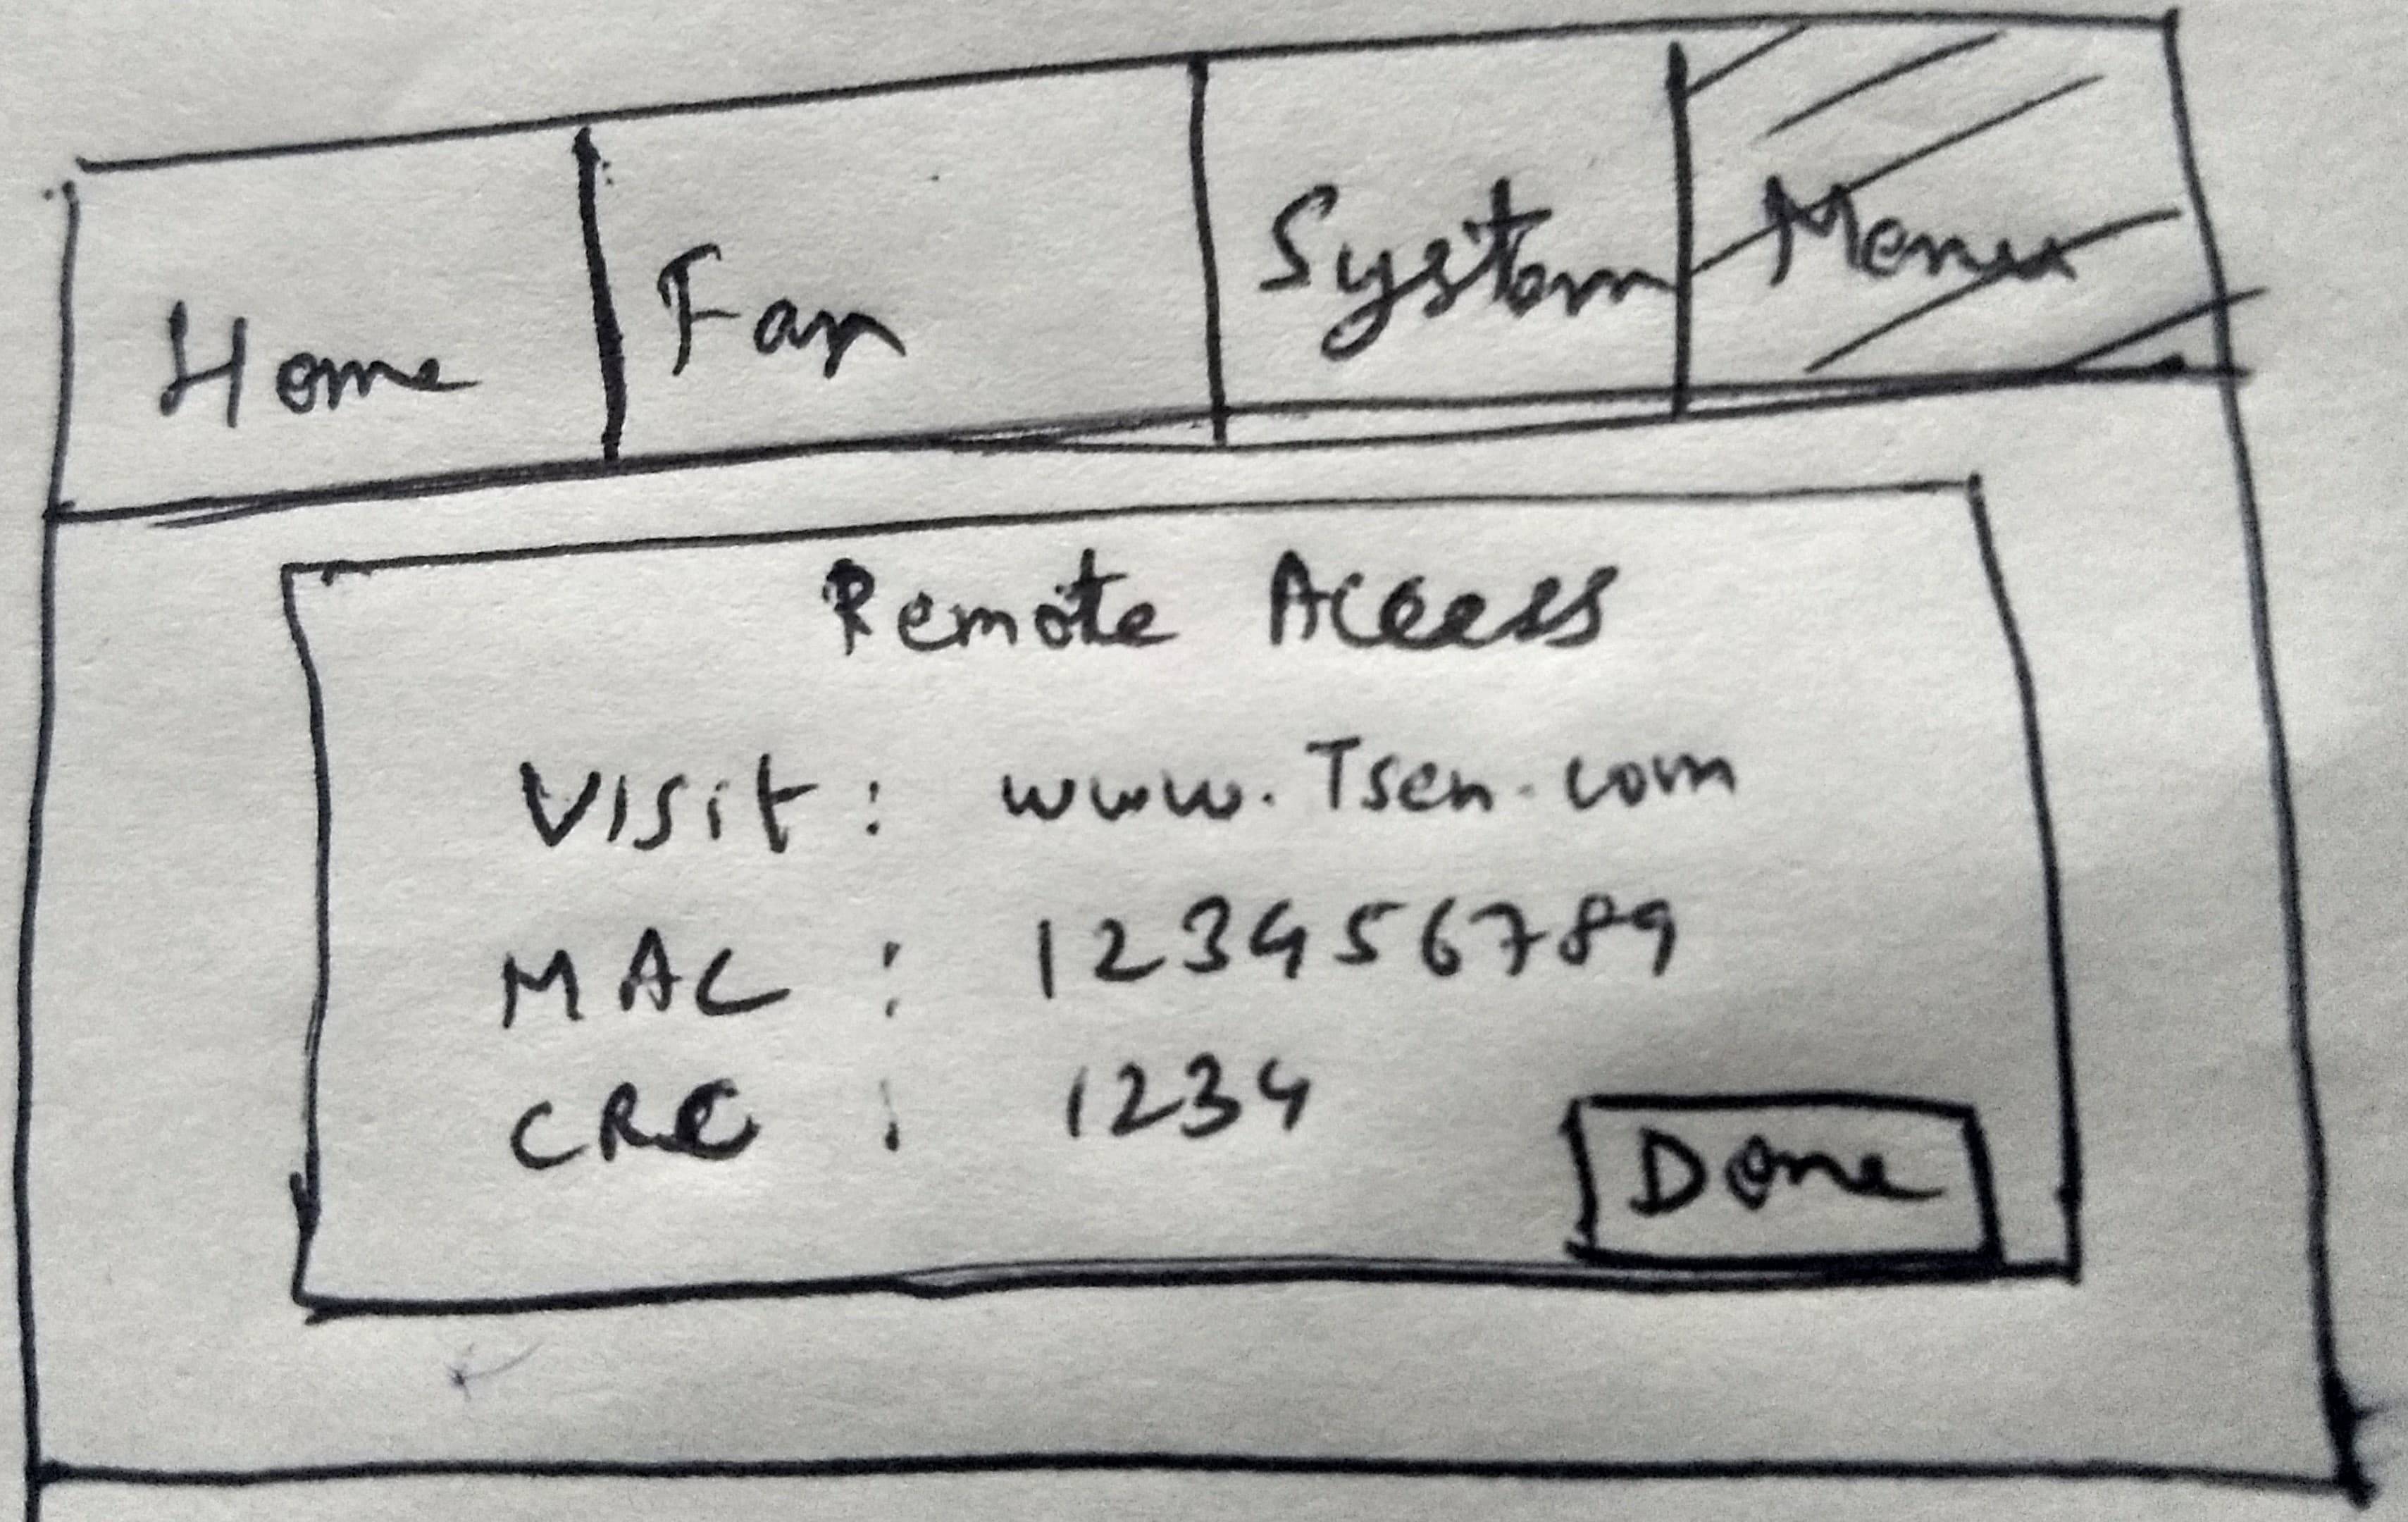 Home Fan System Menu
Remote Access
Visit : www.Tsen.com
MAC : 123456789
CRC : 1234
Done